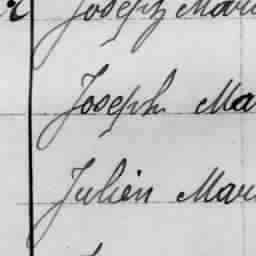 Joseph Mari
Joseph Ma
Julien Mari